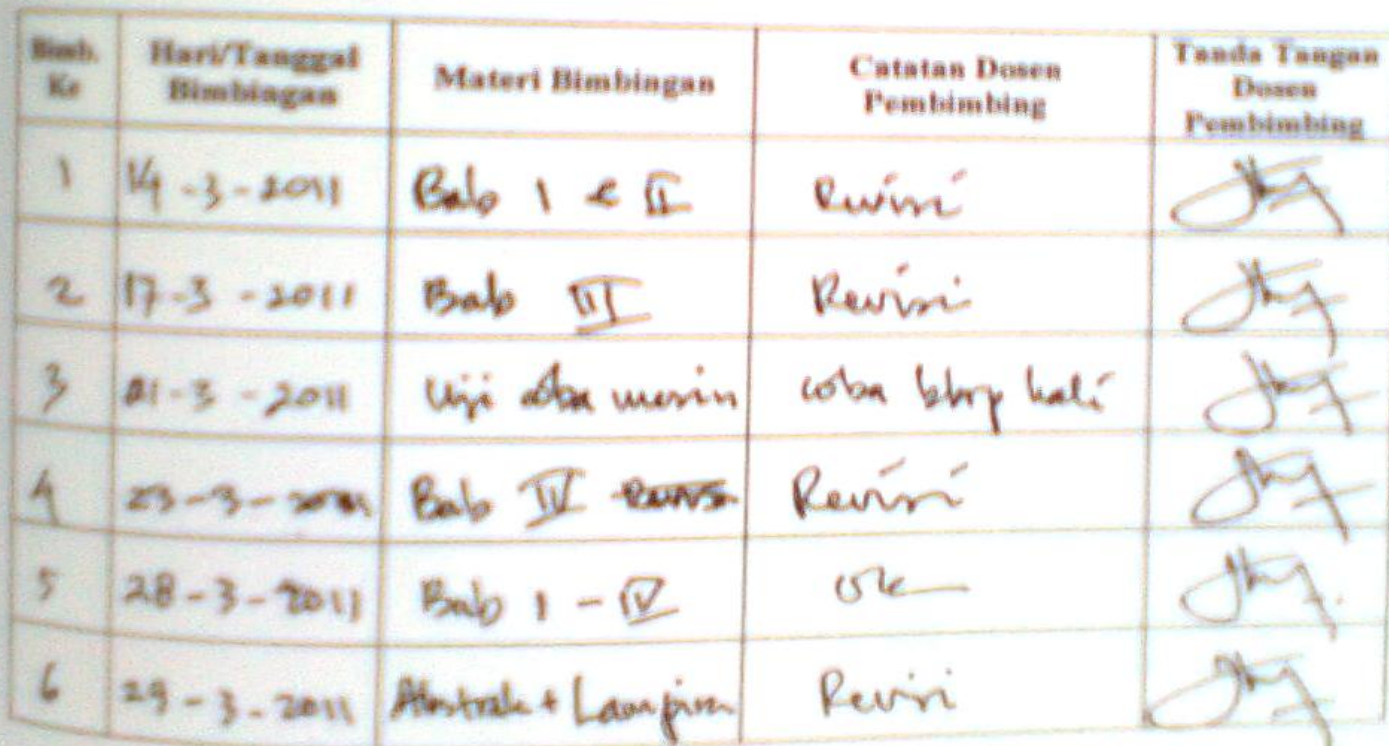 Bimb. Ke Hari/Tanggal Bimbingan Materi Bimbingan Catatan Dosen Pembimbing Tanda Tangan Dosen Pembimbing
1 14-3-2011 Bab I & II Revisi
2 17-3-2011 Bab III Revisi
3 21-3-2011 Uji coba mesin coba bbrp kali
4 23-3-2011 Bab IV Revisi
5 28-3-2011 Bab I - IV ok
6 29-3-2011 Abstrak + Lampiran Revisi